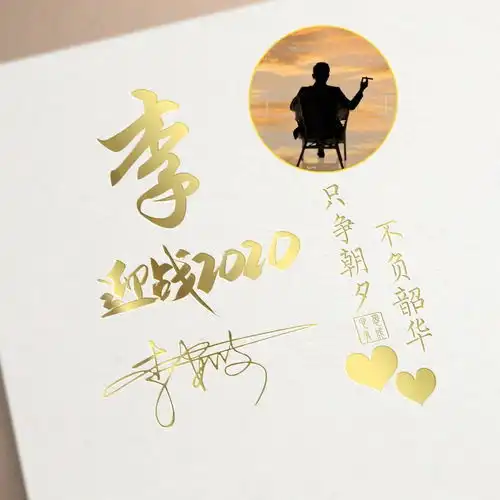 李
迎战2020
只争朝夕
不负韶华